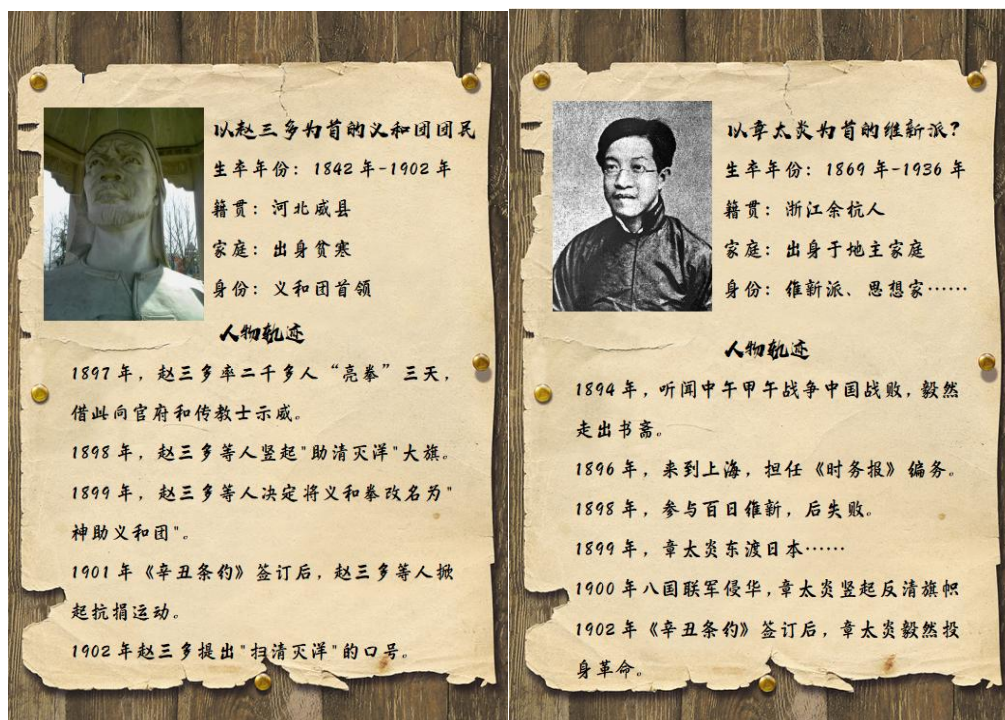 以赵三多为首的义和团团民
生卒年份：1842 年-1902 年
籍贯：河北威县
家庭：出身贫寒
身份：义和团首领
人物轨迹
1897 年，赵三多率二千多人“亮拳”三天，
借此向官府和传教士示威。
1898 年，赵三多等人竖起"助清灭洋"大旗。
1899 年，赵三多等人决定将义和拳改名为"
神助义和团"。
1901 年《辛丑条约》签订后，赵三多等人掀
起抗捐运动。
1902 年赵三多提出"扫清灭洋"的口号。
以章太炎为首的维新派？
生卒年份：1869 年-1936 年
籍贯：浙江余杭人
家庭：出身于地主家庭
身份：维新派、思想家……
人物轨迹
1894 年，听闻中午甲午战争中国战败，毅然
走出书斋。
1896 年，来到上海，担任《时务报》编务。
1898 年，参与百日维新，后失败。
1899 年，章太炎东渡日本……
1900 年八国联军侵华，章太炎竖起反清旗帜
1902 年《辛丑条约》签订后，章太炎毅然投
身革命。